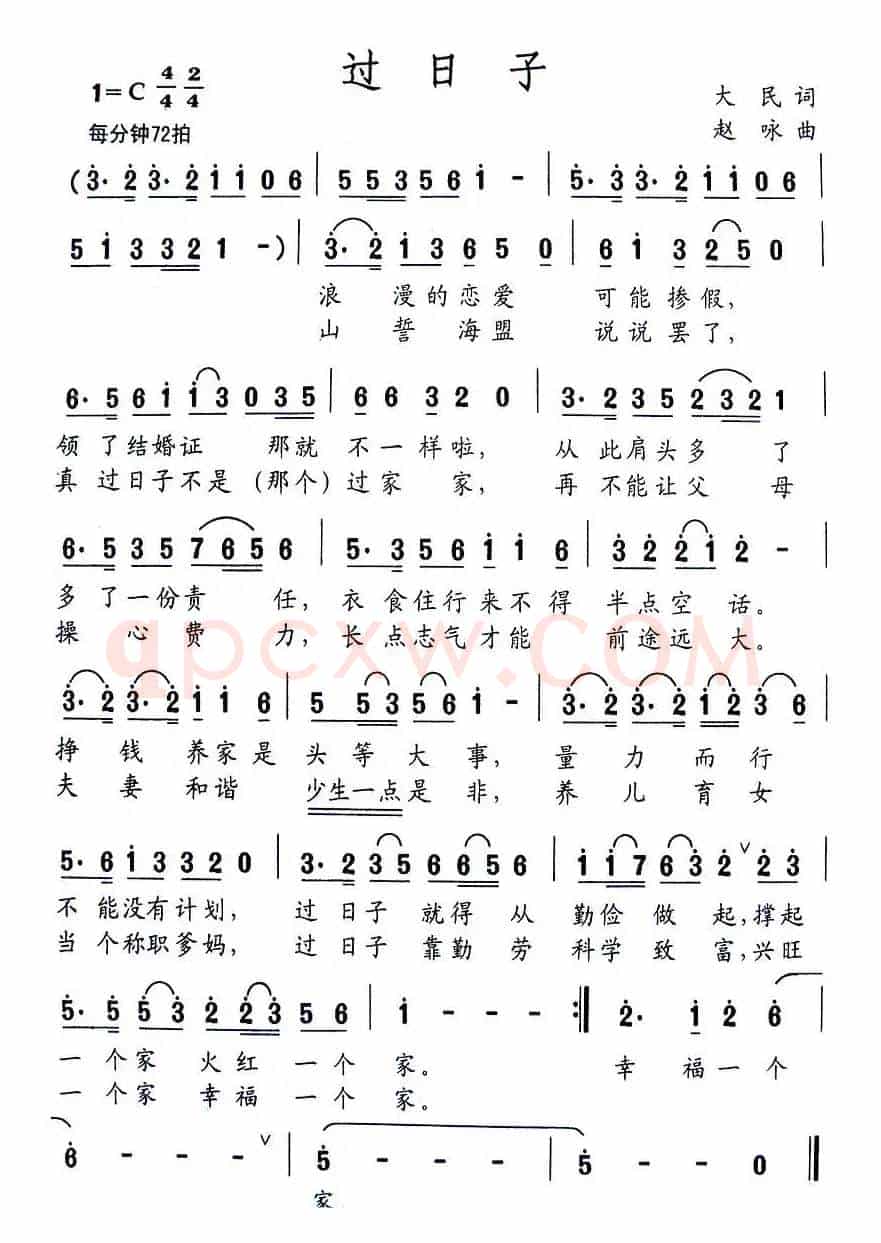 过日子
1=C 4/4 2/4
大民词
每分钟72拍
赵咏曲
(3·2 3·2 1 1 0 6 | 5 5 3 5 6 1 - | 5·3 3·2 1 1 0 6 |
5 1 3 3 2 1 -) | 3·2 1 3 6 5 0 | 6 1 3 2 5 0 |
浪漫的恋爱 可能掺假,
山誓海盟 说说罢了,
6·5 6 1 1 3 0 3 5 | 6 6 3 2 0 | 3·2 3 5 2 3 2 1 |
领了结婚证 那就不一样啦, 从此肩头多了
真过日子不是(那个)过家家, 再不能让父母
6·5 3 5 7 6 5 6 | 5·3 5 6 1 1 6 | 3 2 2 1 2 - |
多了一份责任, 衣食住行来不得 半点空话。
操心费力, 长点志气才能 前途远大。
qpcxw.COM
3·2 3·2 1 1 6 | 5 5 3 5 6 1 - | 3·2 3·2 1 2 3 6 |
挣钱养家是头等大事, 量力而行
夫妻和谐 少生一点是非, 养儿育女
5·6 1 3 3 2 0 | 3·2 3 5 6 6 5 6 | 1 1 7 6 3 2 ∨ 2 3 |
不能没有计划, 过日子就得从 勤俭做起,撑起
当个称职爹妈, 过日子靠勤劳 科学致富,兴旺
5·5 5 3 2 2 3 5 6 | 1 - - - :‖ 2· 1 2 6 |
一个家火红一个家。 幸福一个
一个家幸福一个家。
6 - - - ∨ | 5 - - - | 5 - - 0 ‖
家